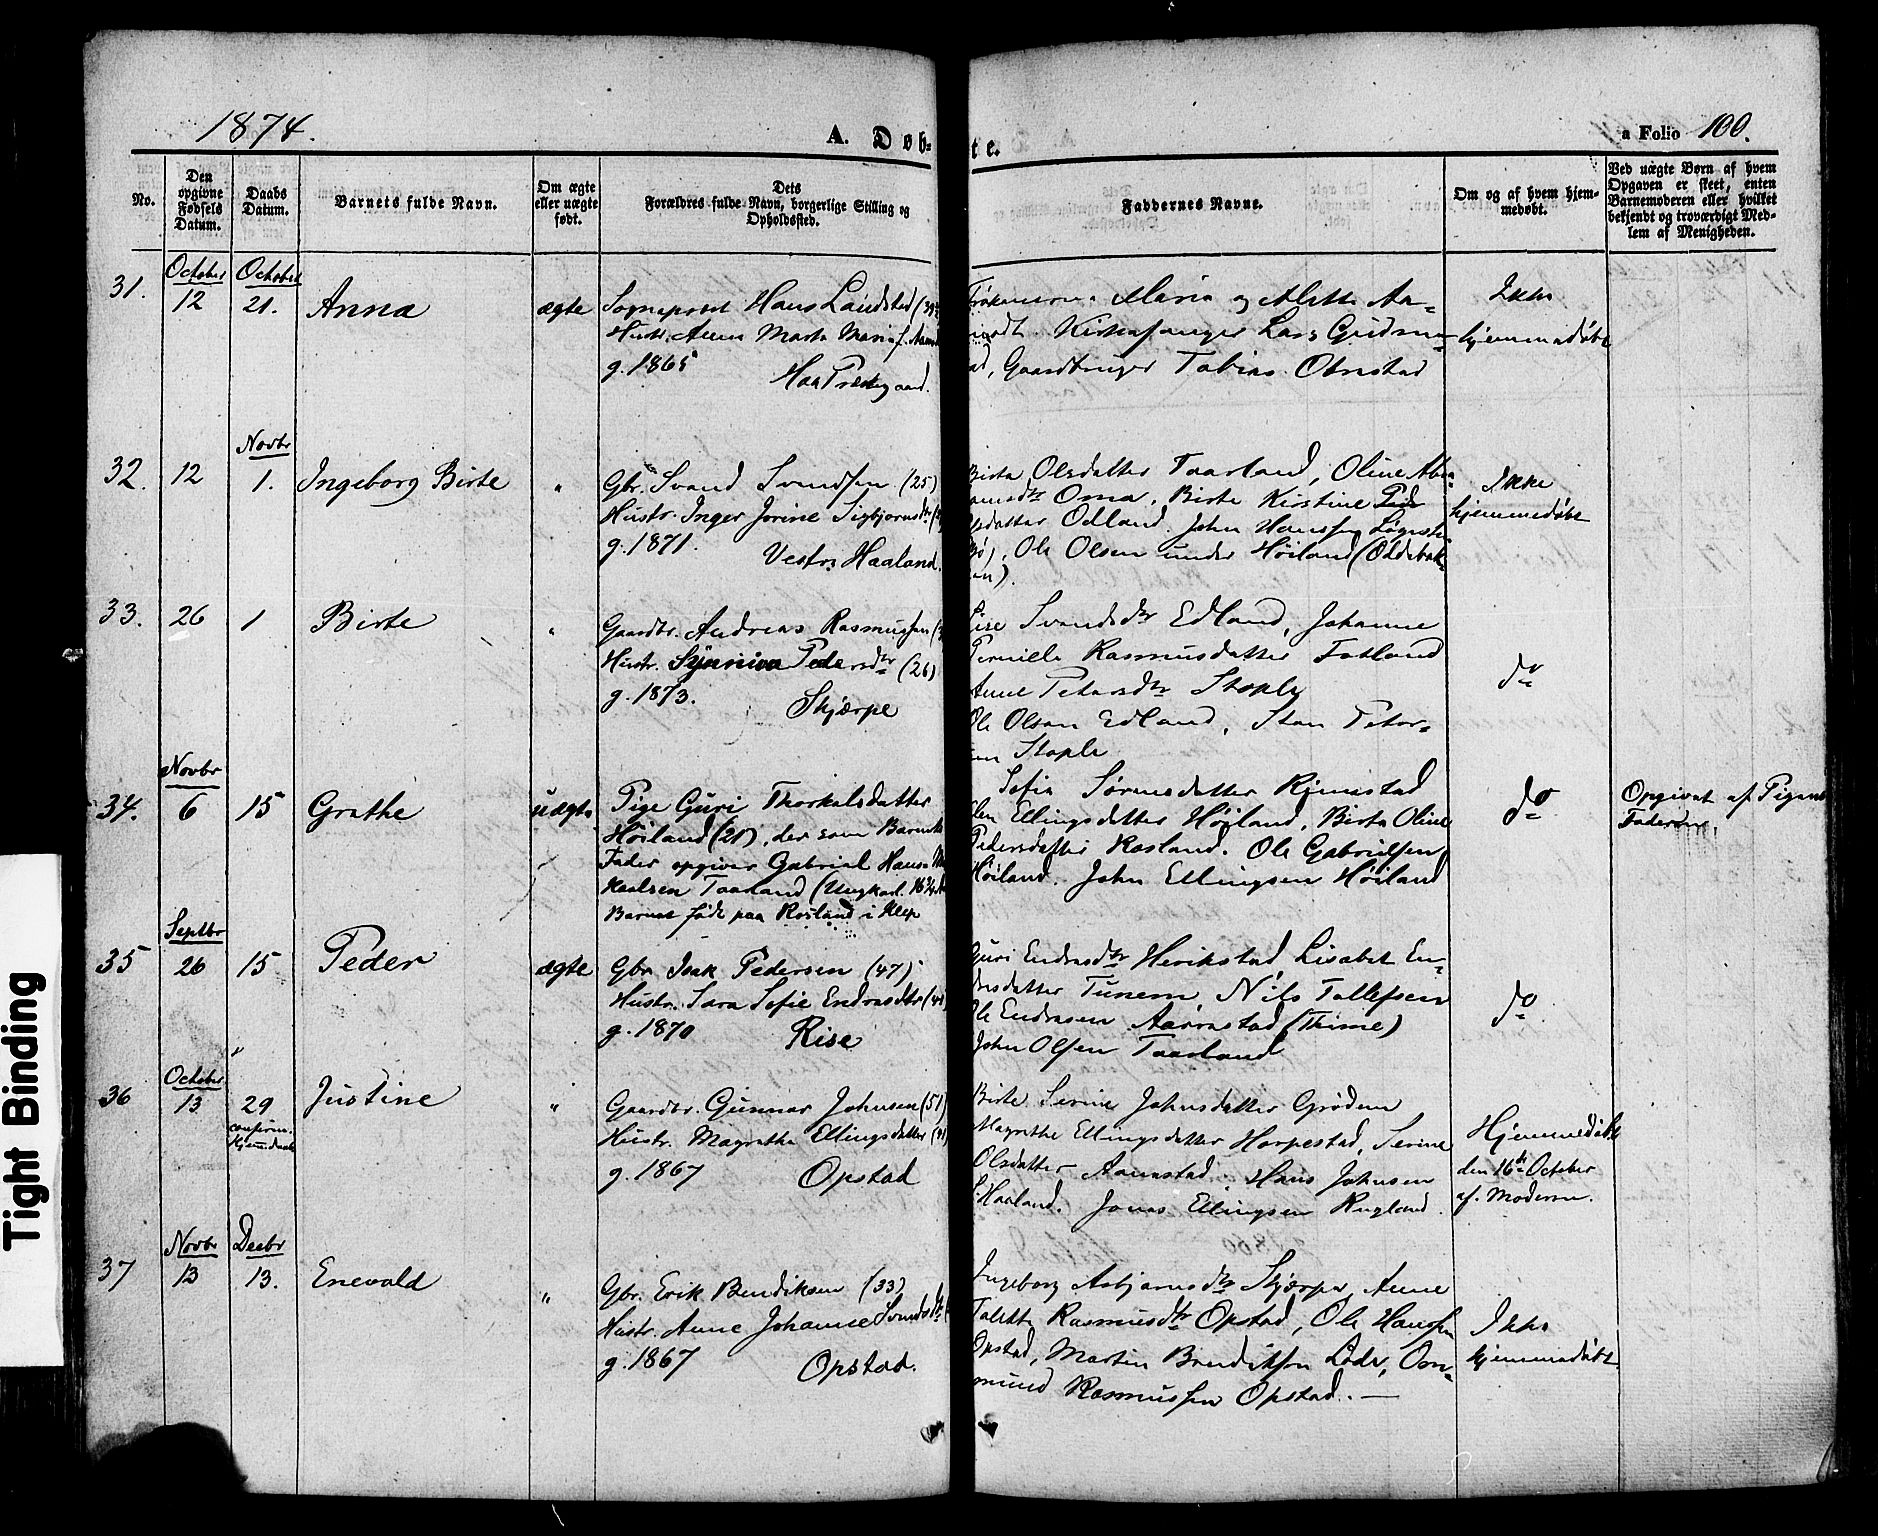 1874.
A. Døb-
te.
a Folio 100.
No.
Den opgivne Fødsels Datum.
Daabs Datum.
Barnets fulde Navn.
Om ægte eller uægte født.
Dets Forældres fulde Navn, borgerlige Stilling og Opholdssted.
Faddernes Navne.
Om og af hvem hjemmedøbt.
Ved uægte Børn af hvem Opgaven er skeet, enten Barnemoderen eller hvilket bekjendt og troværdigt Medlem af Menigheden.
October October
31. 12 21. Anna ægte
Sogneprest Hans Landstad (39
Hustr. Anna Marta Maria f.
g. 1865
Haa Prestegaard.
Maria og Alette Aa-
Kirkesanger Lars Gudm
ad, Gaardbruger Tobias Obrestad
Ikke
hjemmedøbt
Novbr
32. 12 1. Ingeborg Birte "
Gbr. Svend Svendsen (25)
Hustr. Inger Jorine Sigbjørnsdtr
g. 1871.
Vestre Haaland.
Birta Olsdatter Taarland, Oline Abra
amsdtr Oma, Birte Kirstine Ped
rsdatter Odland. John Hansen
Ole Olsen under Höiland (Oldebak-
en).
Ikke
hjemmedøbt
33. 26 1 Birte "
Gaardbr. Andreas Rasmussen
Hustr. Synniva Pedersdtr (26)
g. 1873.
Skjærpe
Lise Svendsdtr Edland, Johanne
Pernille Rasmusdatter Fotland
Anne Petersdtr Stople
Ole Olsen Edland, Sten Peter-
sen Stople
do
Novbr
34. 6 15 Grethe uægte
Pige Guri Thorkelsdatter
Höiland (21), der som Barnets
Fader opgiver Gabriel Hans
Taarland (Ungkarl. 16
Barnet født paa Rosland i Klep
Sofia Sørensdatter Njemstad
Ellingsdatter Höiland, Birta Oline
Pedersdatter Rosland. Ole Gabrielsen
Höiland. John Ellingsen Höiland
do
Opgivet af Pigens
Faderen.
Septbr
35 26 15 Peder ægte
Gbr. Isak Pedersen (47)
Hustr. Sara Sofie Endresdtr
g. 1870
Rise
Guri Endresdtr Herikstad Lisabet En-
dresdatter Tunem, Nils Tollefsen
Ole Endresen Aarrestad (Thime)
John Olsen Taarland
do
October
36 13 29 Justine "
confirm.
hjemmedaab
Gaardbr. Gunnar Johnsen (51)
Hustr. Magrethe Ellingsdatter
g. 1867
Opstad
Birte Serine Johnsdatter Grødem
Magrethe Ellingsdatter Horpestad, Serine
Olsdatter Aarrestad. Hans Johnsen
S. Haaland. Jonas Ellingsen Rugland.
Hjemmedøbt
den 16de October
af Moderen.
Novbr Decbr
37 13 13. Enevald "
Gbr. Erik Bendiksen (33)
Hustr. Anne Johanne Svendsdtr
g. 1867
Opstad.
Ingeborg Asbjørnsdtr Skjærpe, Anne
Talette Rasmusdtr Opstad, Ole Hansen
Opstad, Martin Bendiksen Lode, Om-
mund Rasmussen Opstad. —
Ikke
hjemmedøbt
Tight Binding